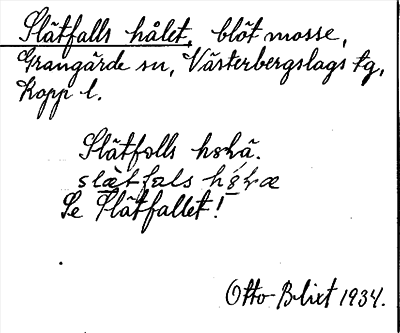 Slätfalls hålet, blöt mosse,
Grangärde sn, Västerbergslags tg,
Kopp l.
Slätfalls
Se Slätfallet!
Otto Blixt 1934.